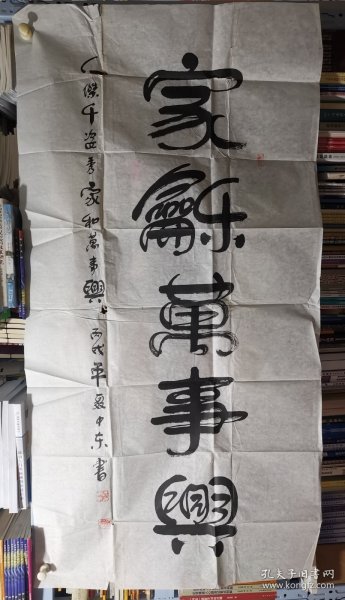 家龢萬事興
人傑千盅秀家和萬事興丙戌年夏中东書
孔夫子旧书网